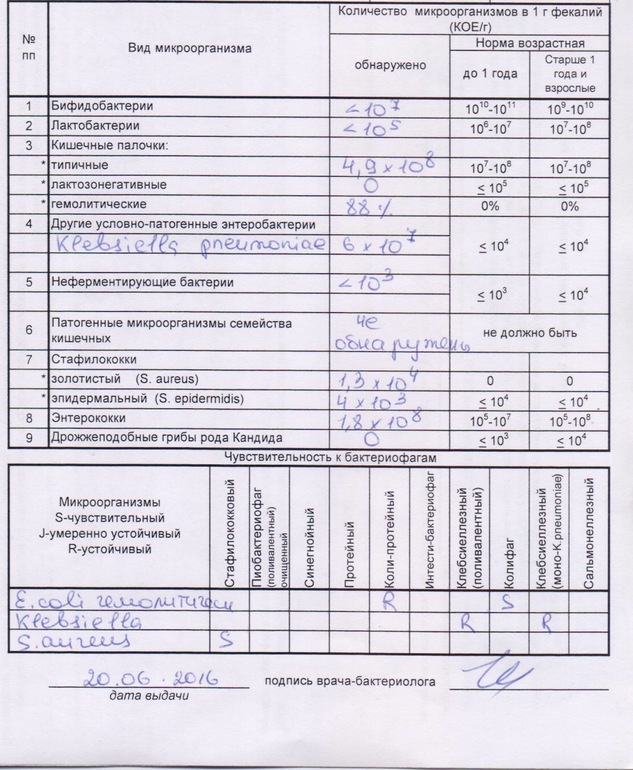 № пп | Вид микроорганизма | Количество микроорганизмов в 1 г фекалий (КОЕ/г)
обнаружено | Норма возрастная
до 1 года | Старше 1 года и взрослые
1 | Бифидобактерии | <10⁷ | 10¹⁰-10¹¹ | 10⁹-10¹⁰
2 | Лактобактерии | <10⁵ | 10⁶-10⁷ | 10⁷-10⁸
3 | Кишечные палочки:
* типичные | 4,9 x 10⁸ | 10⁷-10⁸ | 10⁷-10⁸
* лактозонегативные | 0 | ≤ 10⁵ | ≤ 10⁵
* гемолитические | 88 % | 0% | 0%
4 | Другие условно-патогенные энтеробактерии
Klebsiella pneumoniae | 6 x 10⁷ | ≤ 10⁴ | ≤ 10⁴
5 | Неферментирующие бактерии | <10³ | ≤ 10³ | ≤ 10⁴
6 | Патогенные микроорганизмы семейства кишечных | не обнаружены | не должно быть
7 | Стафилококки
* золотистый (S. aureus) | 1,3 x 10⁴ | 0 | 0
* эпидермальный (S. epidermidis) | 4 x 10³ | ≤ 10⁴ | ≤ 10⁴
8 | Энтерококки | 1,8 x 10⁸ | 10⁵-10⁷ | 10⁵-10⁸
9 | Дрожжеподобные грибы рода Кандида | 0 | ≤ 10³ | ≤ 10⁴
Чувствительность к бактериофагам
Микроорганизмы
S-чувствительный
J-умеренно устойчивый
R-устойчивый
Стафилококковый
Пиобактериофаг (поливалентный) очищенный
Синегнойный
Протейный
Коли-протейный
Интести-бактериофаг
Клебсиеллезный (поливалентный)
Колифаг
Клебсиеллезный (моно-K.pneumoniae)
Сальмонеллезный
E.coli гемолитическ | R | S
Klebsiella | R | R
S.aureus | S
20.06.2016 подпись врача-бактериолога
дата выдачи